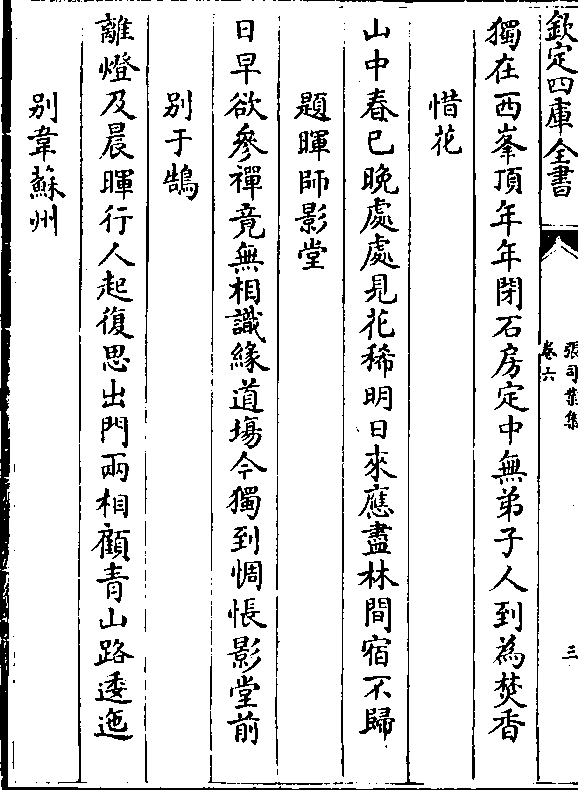 欽定四庫全書
張司業集
卷六
三
獨在西峯頂年年閉石房定中無弟子人到為焚香
惜花
山中春已晚處處見花稀明日來應盡林間宿不歸
題暉師影堂
日早欲參禪竟無相識緣道塲今獨到惆悵影堂前
别于鵠
離燈及晨暉行人起復思出門兩相顧青山路逶迤
别韋蘇州